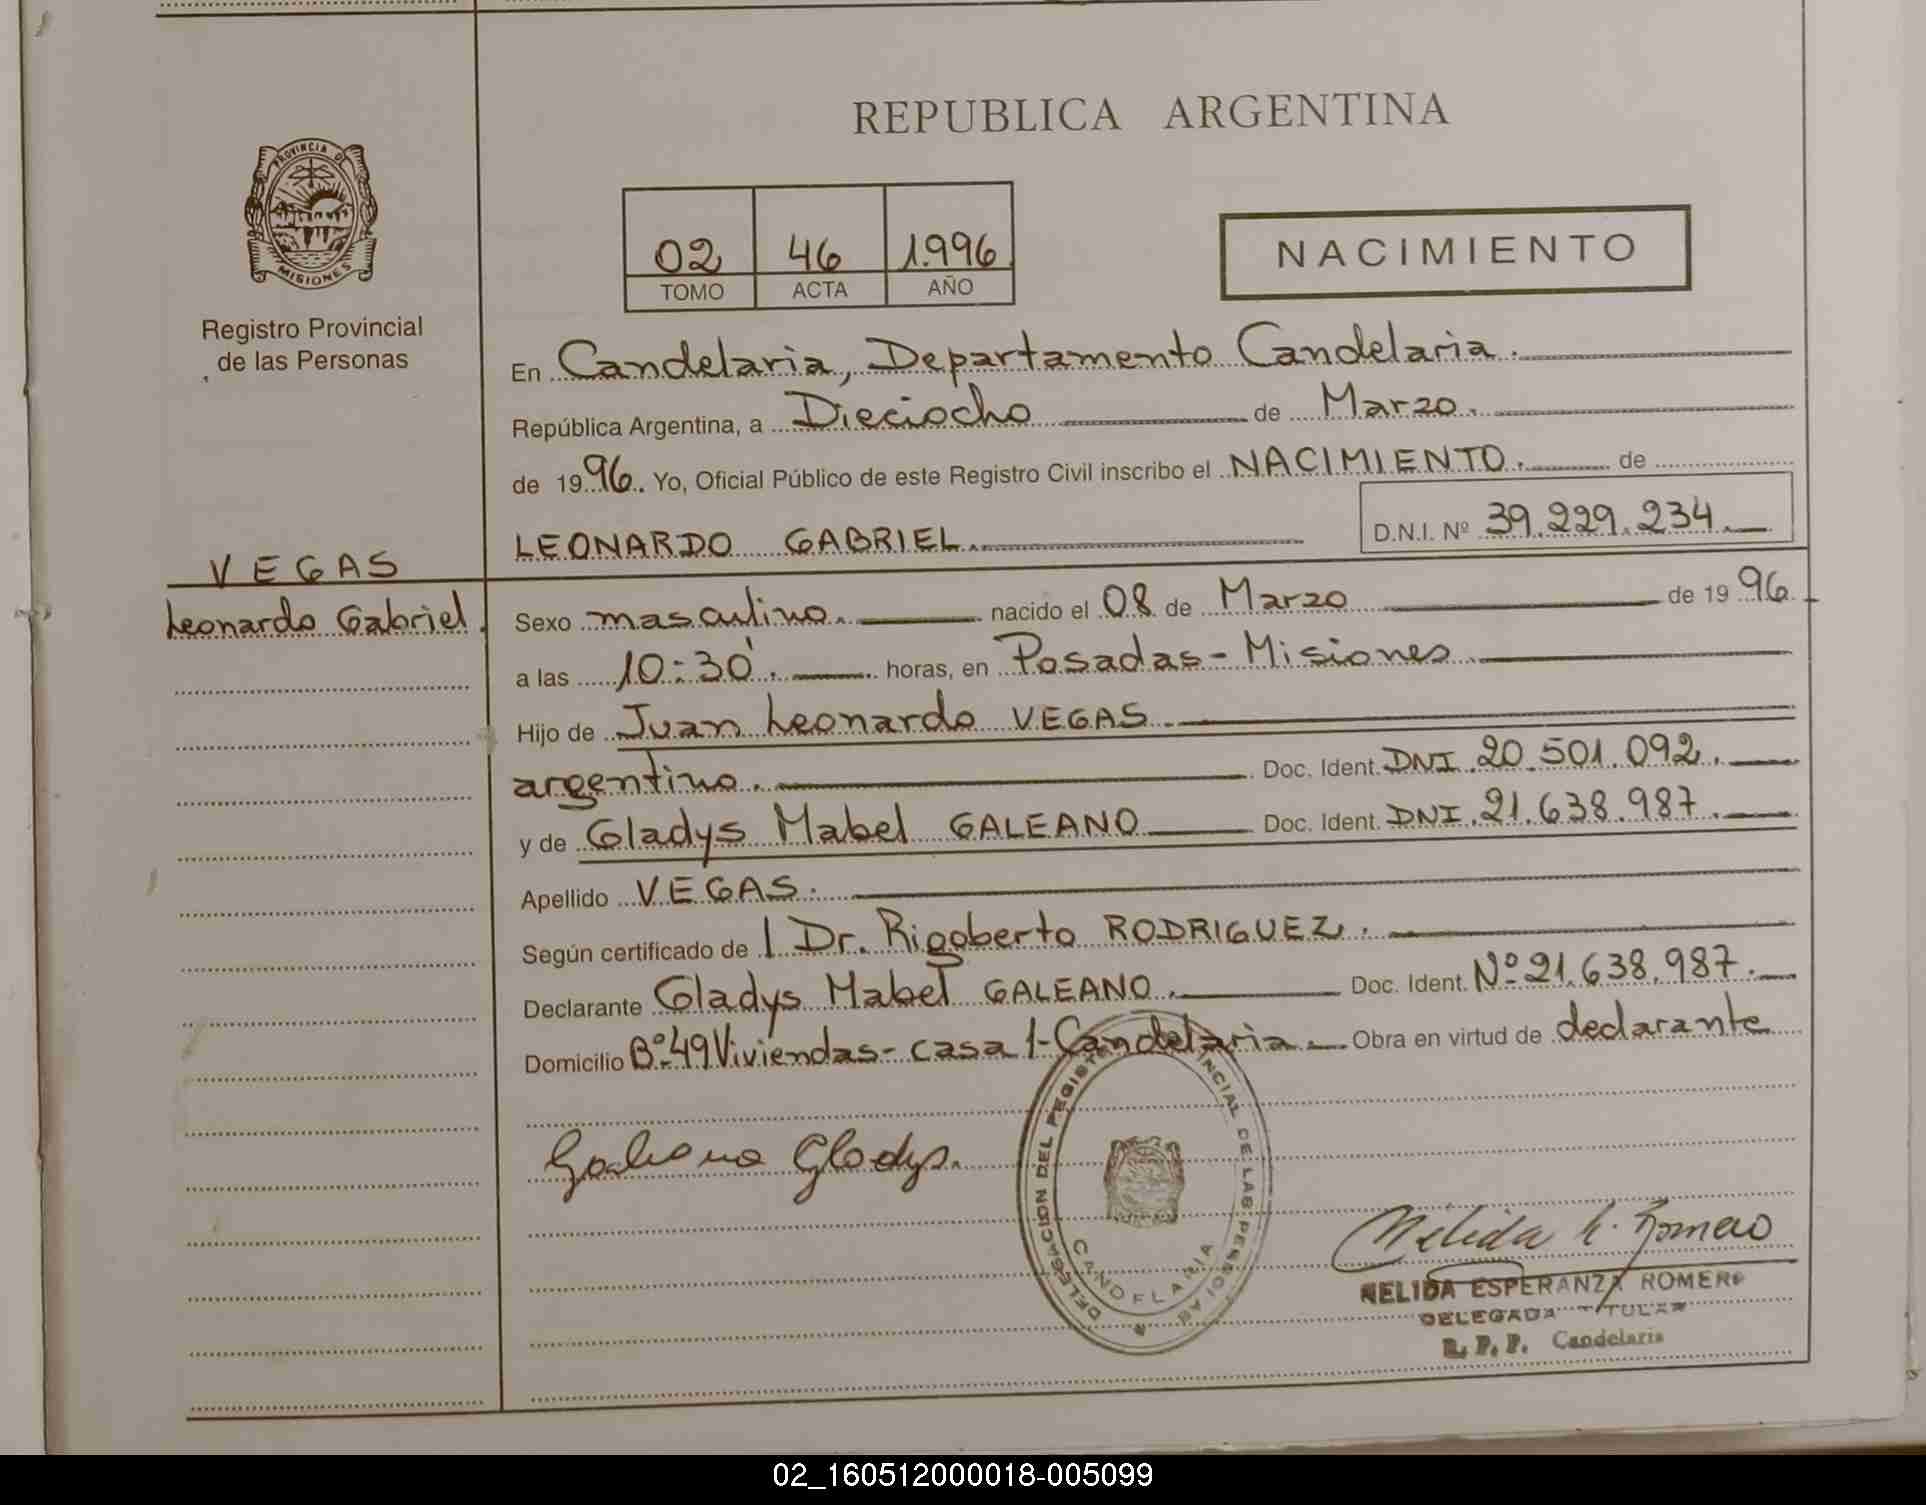 REPUBLICA ARGENTINA
PROVINCIA DE
MISIONES
Registro Provincial
de las Personas
02 46 1.996
TOMO ACTA AÑO
NACIMIENTO
En Candelaria, Departamento Candelaria.
República Argentina, a Dieciocho de Marzo.
de 1996. Yo, Oficial Público de este Registro Civil inscribo el NACIMIENTO. de
LEONARDO GABRIEL. D.N.I. Nº 39.229.234.
VEGAS
Leonardo Gabriel.
Sexo masculino. nacido el 08 de Marzo de 1996.
a las 10:30'. horas, en Posadas - Misiones
Hijo de Juan Leonardo VEGAS
argentino. Doc. Ident. DNI. 20.501.092.
y de Gladys Mabel GALEANO Doc. Ident. DNI. 21.638.987.
Apellido VEGAS.
Según certificado de l Dr. Rigoberto RODRIGUEZ.
Declarante Gladys Mabel GALEANO. Doc. Ident. Nº 21.638.987.
Domicilio Bº 49 Viviendas - casa 1 - Candelaria. Obra en virtud de declarante
Galeano Gladys.
DELEGACION DEL REGISTRO PROVINCIAL DE LAS PERSONAS
CANDELARIA
Nélida E. Romero
NELIDA ESPERANZA ROMERO
DELEGADA TITULAR
R. P. P. Candelaria
02_160512000018-005099